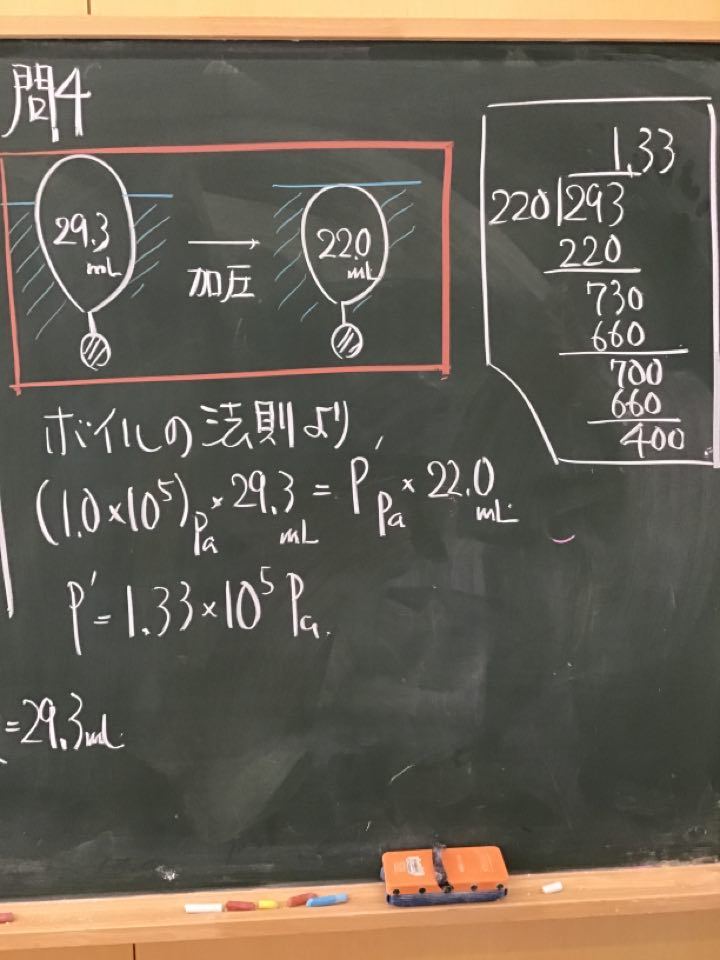 問4
29.3
mL
加圧
22.0
mL
ボイルの法則より,
(1.0×10⁵)Pa × 29.3 mL = P' Pa × 22.0 mL
P' = 1.33×10⁵ Pa.
=29.3mL
1.33
220)293
220
730
660
700
660
400